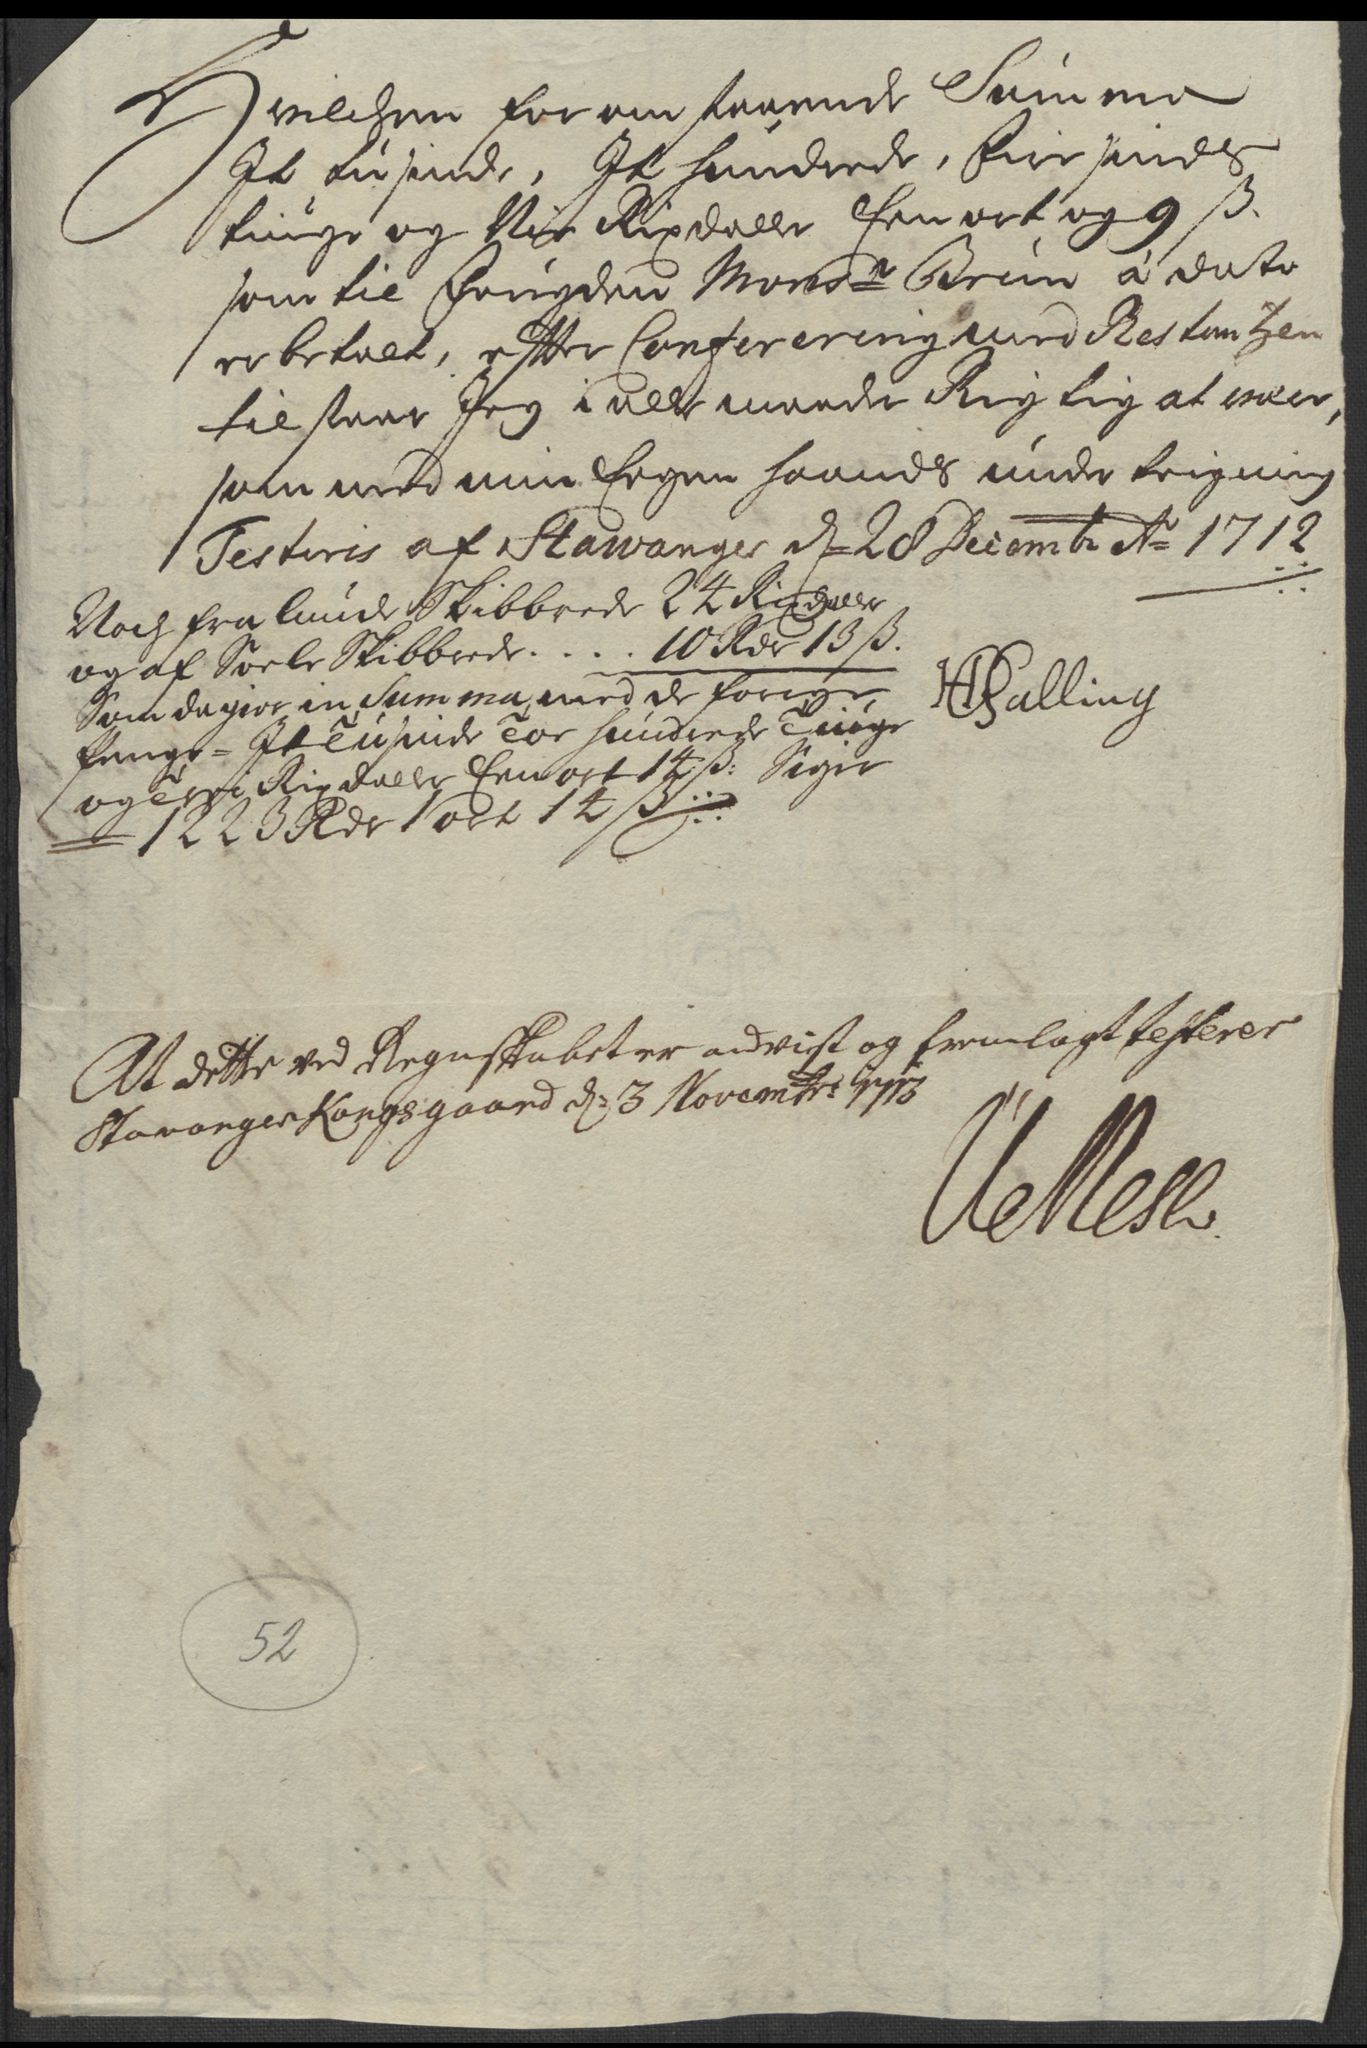 Hvilchen forom staaende Summa
It tusinde, It hundrede, Fiir sinds
tiuge og Nie Rixdaller Een ort og 9 ß.
som til Fougden Monsr Brun á dato
er betalt, efter Conferering med Restantzen
til staar Jeg i alle maader Rigtig at være,
som med min Eegen haands under teigning
Testeris af Stawanger d= 28 Decembr Ao 1712
Noch fra Lunde Skibbrede 24 Rixdaller
og af Soele Skibbrede . . . . 10 Rdr 13 ß.
Som da giør in Summa, med de forige
penge = It Tusinde Toe hundrede Tiuge
og Trei Rixdaller Een ort 14 ß: Siger
= 1223 Rdr 1 ort 14 ß
Halling
At dette ved Regnskabet er andvist og fremlagt testerer
Stavanger Kongsgaard d: 3 Novembris 1713
52